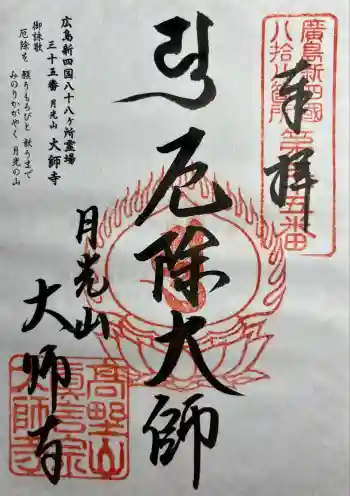 廣島新四國
八拾八箇所
第三十五番
奉拝
厄除大師
月光山
大师寺
広島新四国八十八ヶ所霊場
三十五番 月光山 大師寺
御詠歌
厄除を 願うもろびと 救うまで
みのりかがやく 月光の山
高野山
真言宗
大师寺